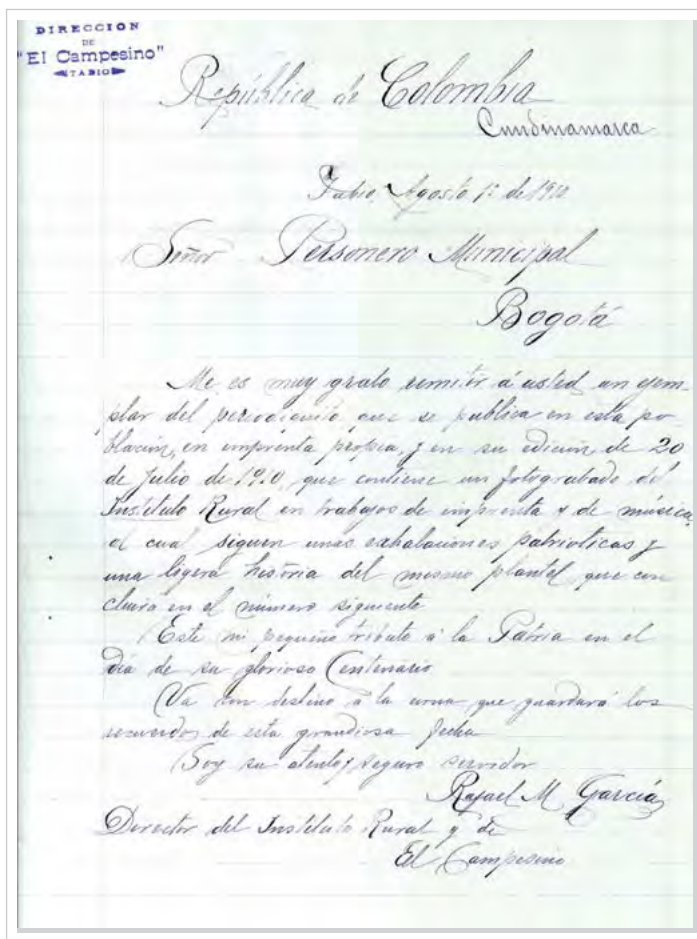 DIRECCION
DE
"El Campesino"
TABIO
República de Colombia
Cundinamarca
Tabio, Agosto 1º de 1910
Señor Personero Municipal
Bogotá
Me es muy grato remitir á usted un ejem-
plar del periodiquito que se publica en esta po-
blación, en imprenta propia, y en su edición de 20
de Julio de 1910, que contiene un fotograbado del
Instituto Rural en trabajos de imprenta y de música,
al cual siguen unas exhalaciones patrioticas y
una ligera historia del mismo plantel, que con
cluira en el número siguiente
Este mi pequeño tributo á la Patria en el
día de su glorioso Centenario
Va con destino á la urna que guardará los
recuerdos de esta grandiosa fecha
Soy su atento y seguro servidor
Rafael M. García
Director del Instituto Rural y de
El Campesino